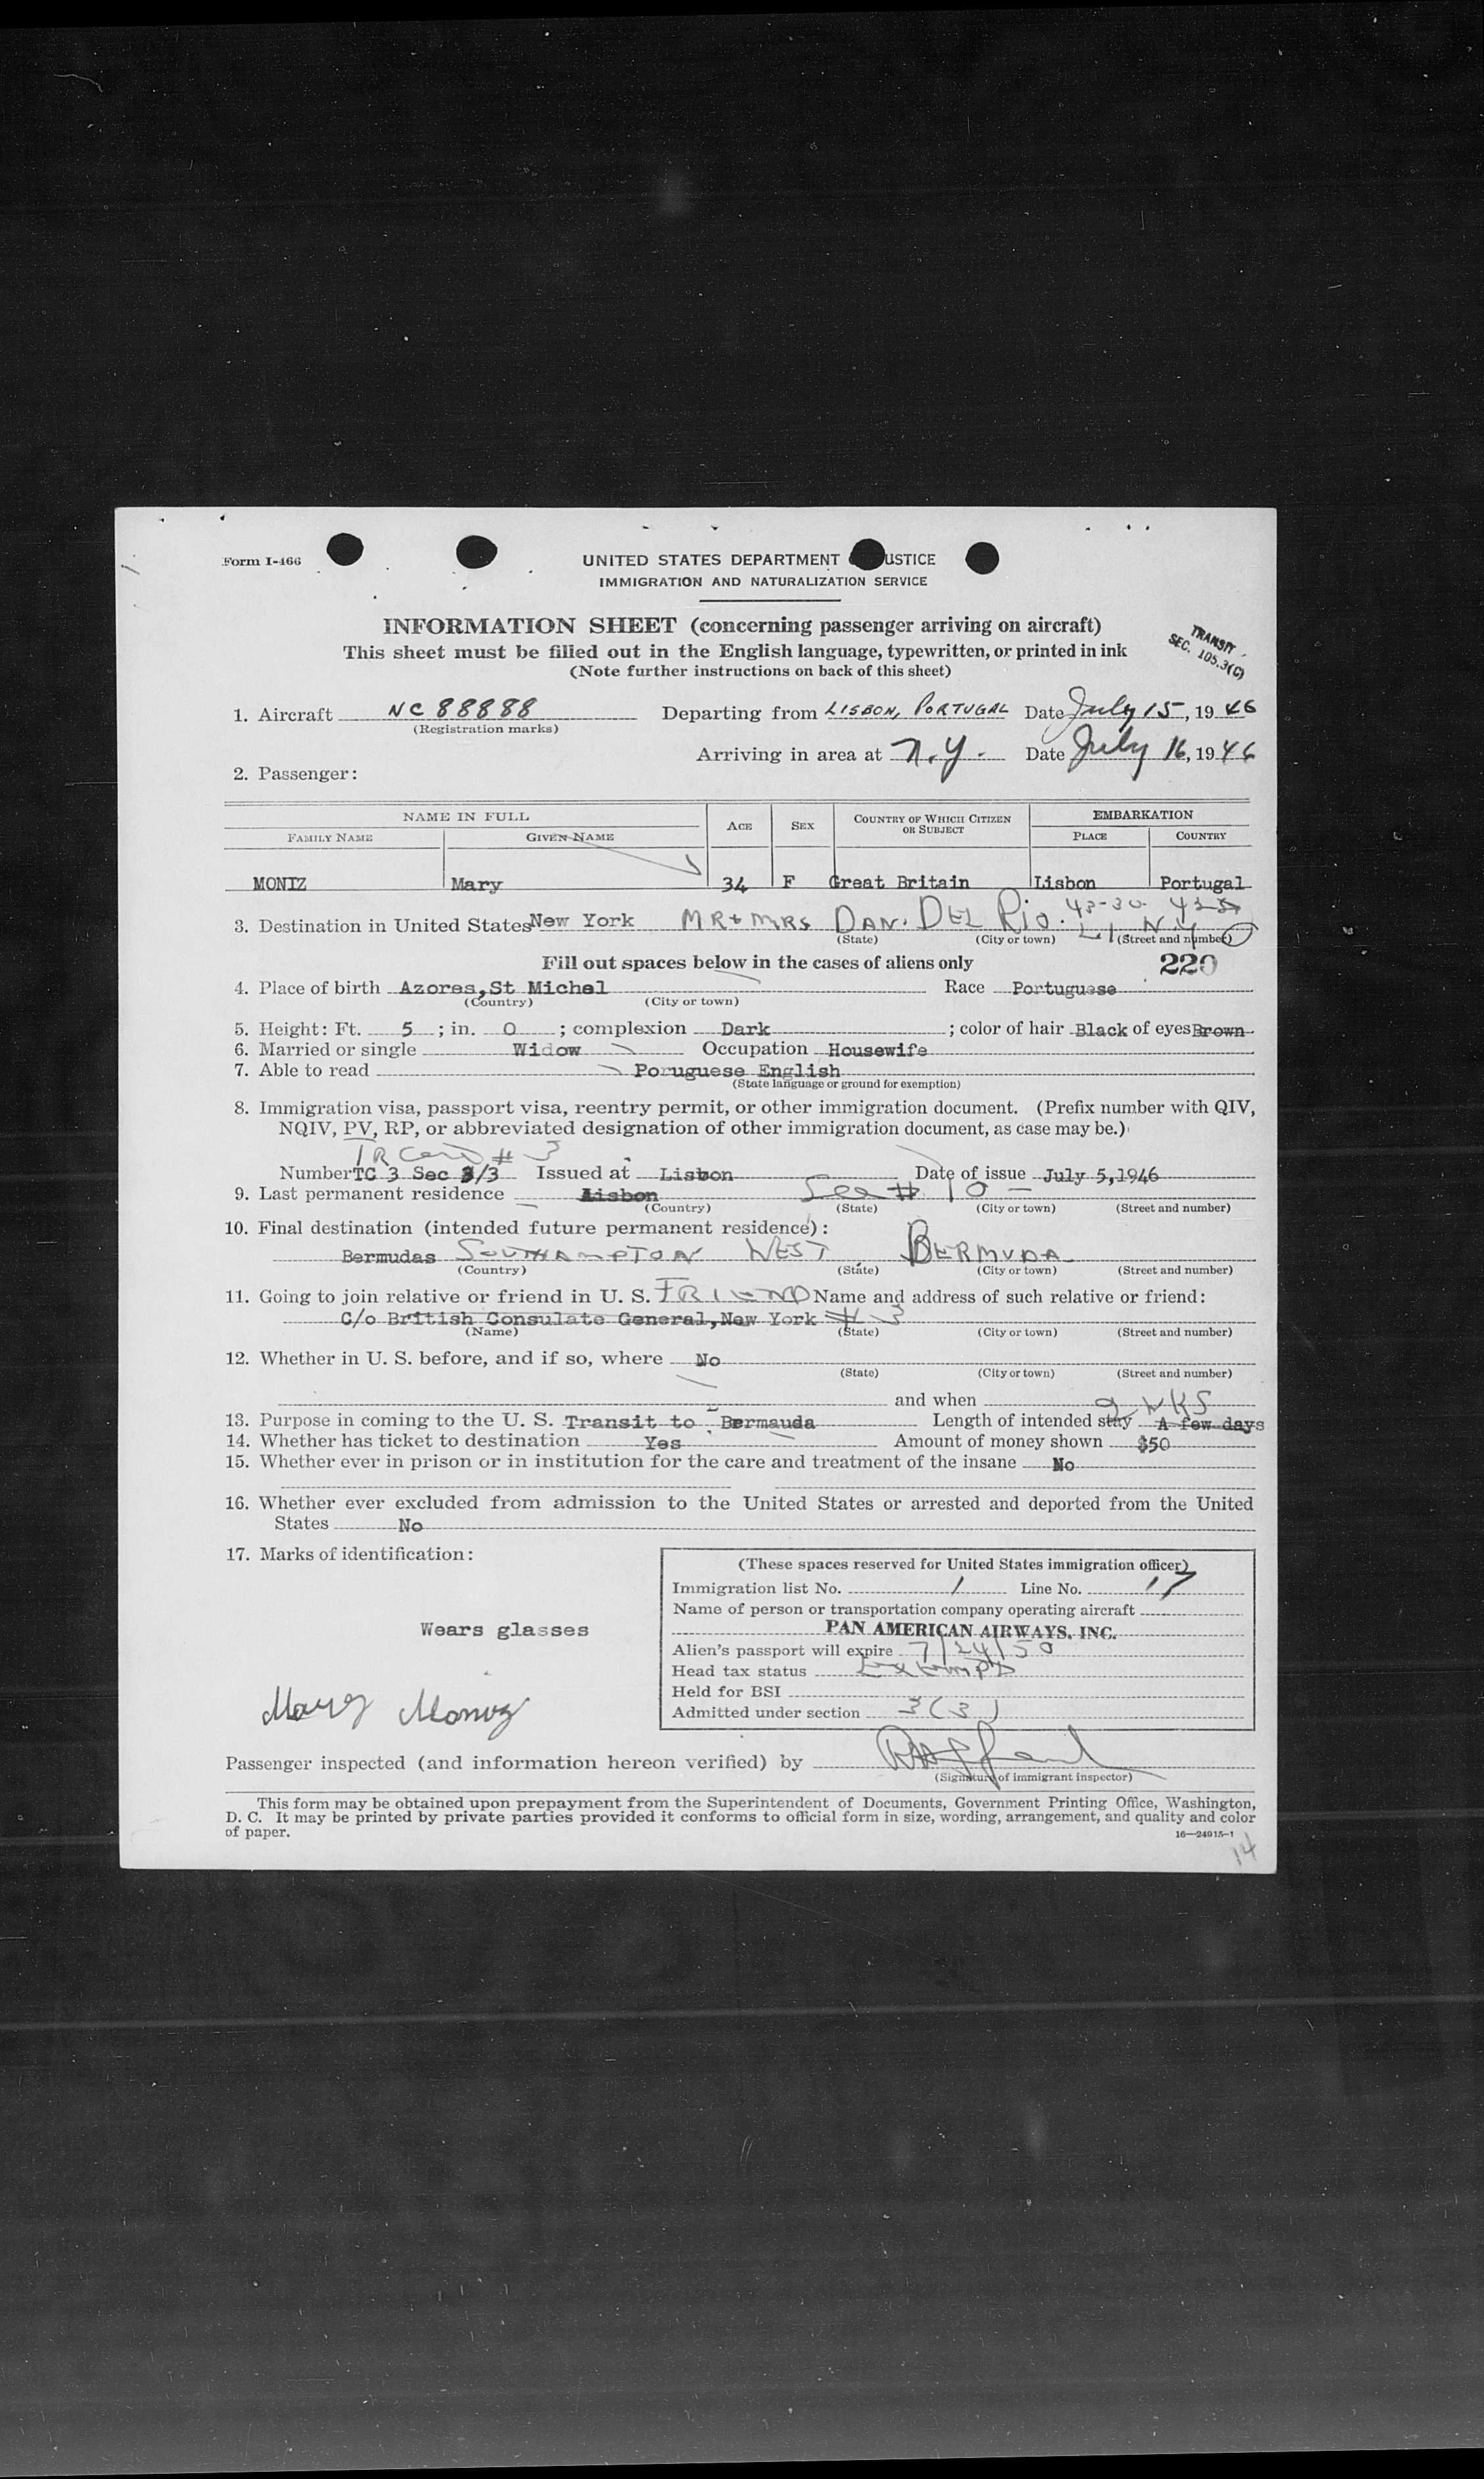 Form I-466
UNITED STATES DEPARTMENT USTICE
IMMIGRATION AND NATURALIZATION SERVICE
INFORMATION SHEET (concerning passenger arriving on aircraft)
This sheet must be filled out in the English language, typewritten, or printed in ink
(Note further instructions on back of this sheet)
TRANSIT
SEC. 105.3(C)
1. Aircraft NC 88888 Departing from LISBON, PORTUGAL Date July 15, 1946
(Registration marks)
Arriving in area at N.Y. Date July 16, 1946
2. Passenger:
NAME IN FULL AGE SEX COUNTRY OF WHICH CITIZEN OR SUBJECT EMBARKATION
FAMILY NAME GIVEN NAME PLACE COUNTRY
MONIZ Mary 34 F Great Britain Lisbon Portugal
3. Destination in United States New York MR + MRS DAN. DEL RIO. 43-30
(State) (City or town) (Street and number)
Fill out spaces below in the cases of aliens only 220
4. Place of birth Azores, St Michel Race Portuguese
(Country) (City or town)
5. Height: Ft. 5 ; in. 0 ; complexion Dark ; color of hair Black of eyes Brown
6. Married or single Widow Occupation Housewife
7. Able to read Poruguese English
(State language or ground for exemption)
8. Immigration visa, passport visa, reentry permit, or other immigration document. (Prefix number with QIV,
NQIV, PV, RP, or abbreviated designation of other immigration document, as case may be.)
TR Card # 3
Number TC 3 Sec 3/3 Issued at Lisbon Date of issue July 5,1946
9. Last permanent residence Lisbon See # 10 -
(Country) (State) (City or town) (Street and number)
10. Final destination (intended future permanent residence):
Bermudas SOUTHAMPTON WEST BERMUDA
(Country) (State) (City or town) (Street and number)
11. Going to join relative or friend in U. S. FRIEND Name and address of such relative or friend:
C/o British Consulate General, New York # 3
(Name) (State) (City or town) (Street and number)
12. Whether in U. S. before, and if so, where No
(State) (City or town) (Street and number)
and when
2 WKS
13. Purpose in coming to the U. S. Transit to Bermauda Length of intended stay A few days
14. Whether has ticket to destination Yes Amount of money shown $50
15. Whether ever in prison or in institution for the care and treatment of the insane No
16. Whether ever excluded from admission to the United States or arrested and deported from the United
States No
17. Marks of identification:
Wears glasses
Mary Moniz
(These spaces reserved for United States immigration officer)
Immigration list No. 1 Line No. 17
Name of person or transportation company operating aircraft
PAN AMERICAN AIRWAYS, INC.
Alien's passport will expire 7/24/50
Head tax status Exempt
Held for BSI
Admitted under section 3(3)
Passenger inspected (and information hereon verified) by
(Signature of immigrant inspector)
This form may be obtained upon prepayment from the Superintendent of Documents, Government Printing Office, Washington,
D. C. It may be printed by private parties provided it conforms to official form in size, wording, arrangement, and quality and color
of paper.
16—24915-1
14